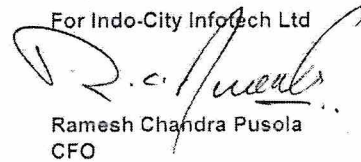 For Indo-City Infotech Ltd
Ramesh Chandra Pusola
CFO